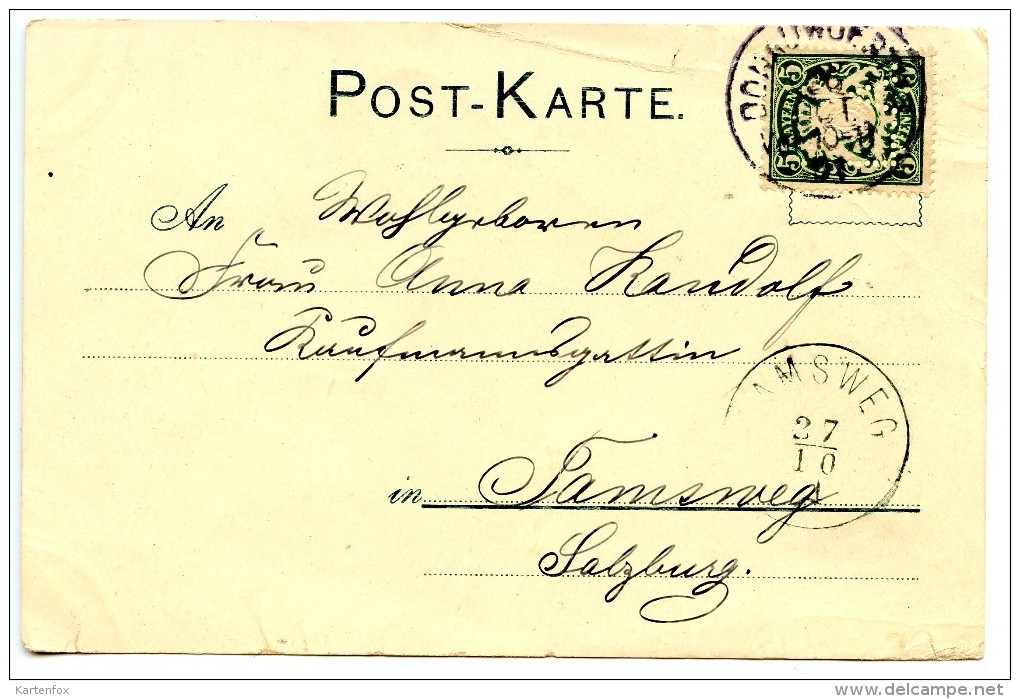 POST-KARTE.
5 BAYERN 5
An Wohlgeboren
Frau Anna Kandolf
Kaufmannsgattin
AMSWEG
27
10
in Tamsweg
Salzburg.
Kartenfox
www.delcampe.net